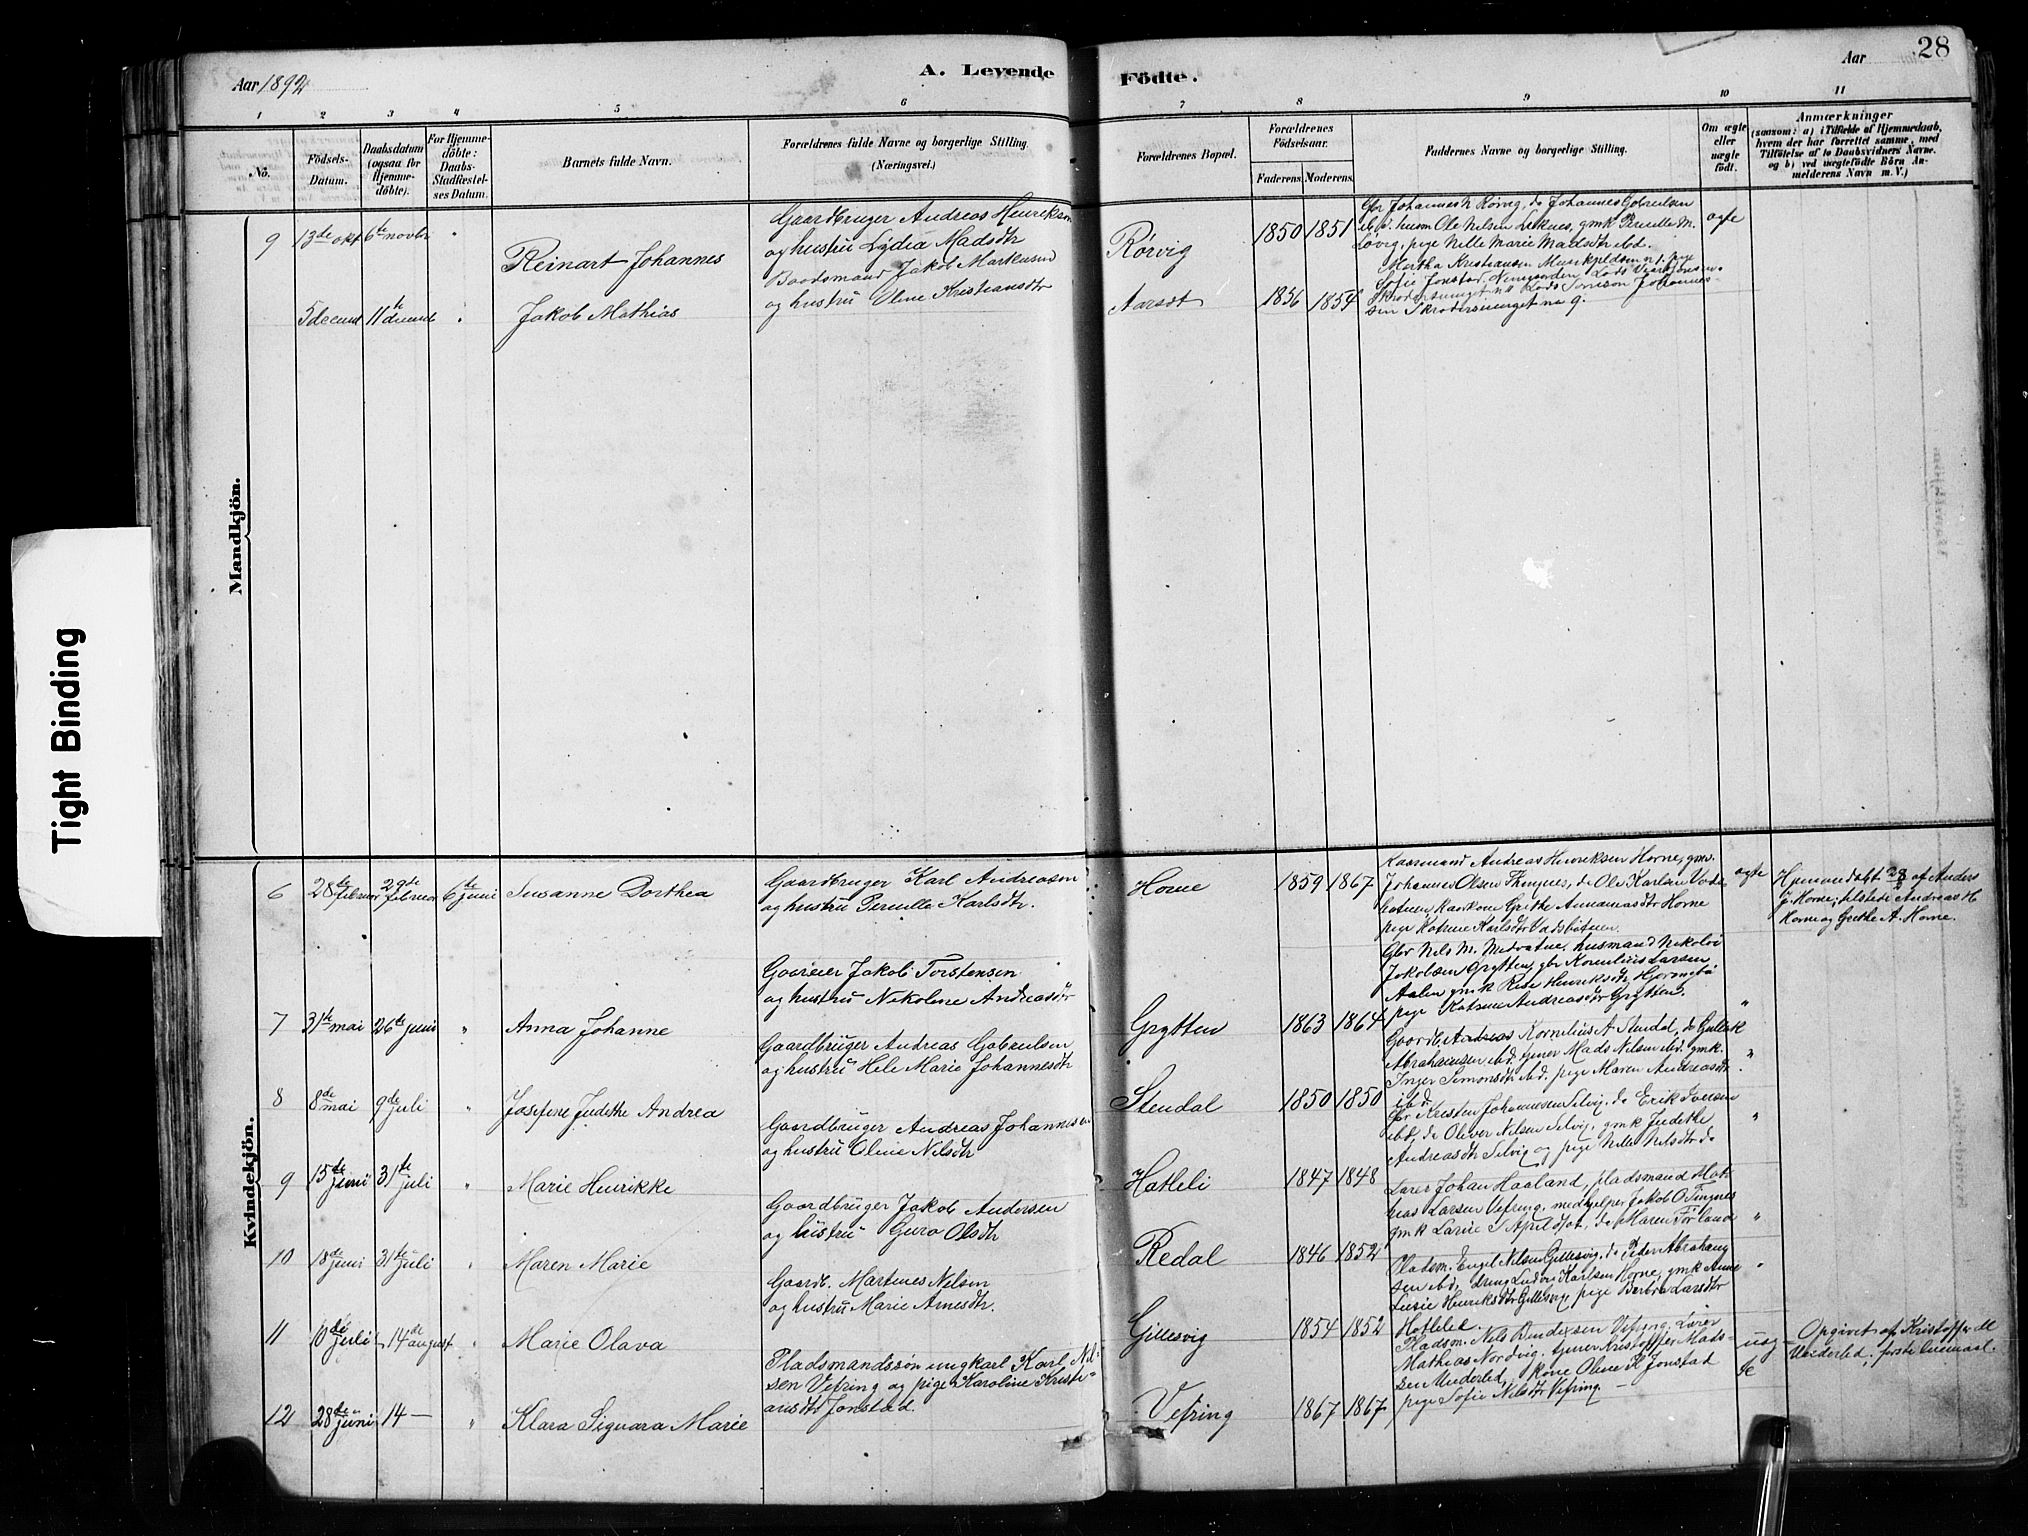 28
Aar 1892
A. Levende
Födte.
Aar
1 2 3 4 5 6 7 8 9 10 11
No.
Födsels-
Datum.
Daabsdatum
(ogsaa for
Hjemme-
döbte).
For Hjemme-
döbte:
Daabs-
Stadfæstel-
ses Datum.
Barnets fulde Navn.
Forældrenes fulde Navne og borgerlige Stilling
(Næringsvei.)
Forældrenes Bopæl.
Forældrenes
Födselsaar.
Faderens
Moderens.
Faddernes Navne og borgerlige Stilling.
Om ægte
eller
uægte
födt.
Anmærkninger
(saasom: a) i Tilfælde af Hjemmedaab,
hvem der har forrettet samme, med
Tilföielse af to Daabsvidners Navne.
og b) ved uægtefödte Börn An-
melderens Navn m. V.)
Mandkjön.
9
13de okt
6te novbr
"
Reinart Johannes
Gaardbruger Andreas Henriksen
og hustru Lydia Madsdtr
Rörvig
1850
1851
Gbr Johannes N Rörvig, do Johannes Gabrielsen
ibd. husm Ole Nilsen Leknes, gmk Pernille M.
Lövig, pige Nille Marie Madsdtr ibd.
ægte
5 decemb
11te decemb
"
Jakob Mathias
Baadsmand Jakob Markusen
og hustru Oline Kristiansdtr
Aarsdt
1856
1854
Martha Kristiansen
Sofie Jonstad, Nymarden, Lods
Johannes-
sen Skrodersmuget no 9.
Kvindekjön.
6
28de februar
29de februar
6te juni
Susanne Dorthea
Gaardbruger Karl Andreasen
og hustru Pernille Karlsdtr.
Horne
1859
1867
Kaarmand Andreas Henriksen Horne, gmv.
Johannes Olsen Thingnes, do Ole Karlsen Vads-
botnen Kaarkone Grethe Annanasdtr Horne
pige Katrine Karlsdtr Vadsbotnen.
ægte
Hjemmedöbt 28/2 af Anders
J. Horne; tilstede Andreas H
Horne og Grethe A. Horne.
7
31te mai
26te juni
"
Anna Johanne
Gaareier Jakob Torstensen
og hustru Nikoline Andreasdtr
Grytten
1863
1864
Gbr Nils M. Medvatne, husmand Nikolai
Jakobsen Grytten, gbr Kornelius Larsen
Aalen gmk Rise Henriksdtr
pige Katrine Andreasdtr Grytten.
"
8
8de mai
9de juli
"
Josefine Judithe Andrea
Gaardbruger Andreas Gabrielsen
og hustru Hele Marie Johannesdtr
Stendal
1850
1850
Gaardb. Andreas Kornelius A Stendal, do Gullak
Abrahamsen ibd. tjener Mads Nilsen ibd. gmk.
Inger Simonsdtr ibd. pige Maren Andreasdtr
ibd.
"
9
15de juni
31te juli
"
Marie Henrikke
Gaardbruger Andreas Johannesen
og hustru Oline Nilsdtr
Hatleli
1847
1848
Gbr Kristen Johannesen Selvig, do Erik Iversen
ibd, do Oliver Nilsen Selvig, gmk Judithe
Andreasdtr Selvig og pige Nille Nilsdtr do
"
10
18de juni
31te juli
"
Maren Marie
Gaardbruger Jakob Andersen
og hustru Guro Olsdtr
Redal
1846
1852
Lærer Johan Haaland, pladsmand Mat-
hias Larsen Vefring, medhjelper Jakob O Tingnes
gmk Larine S Apildjot, do Maren Förland
"
11
10de juli
14de august
"
Marie Olava
Gaardb. Martenes Nilsen
og hustru Marie Arnesdtr.
Gillesvig
1854
1852
Pladsm. Engel Nilsen Gillesvig, do Peder Abraham-
sen ibd, dreng Ludvig Karlsen Horne, gmk Anne
Lusie Henriksdtr Gillesvig pige Berbra Larsdtr
Hatleled.
"
12
28de juni
14 —
"
Klara Signara Marie
Pladsmandssön ungkarl Karl Nil-
sen Vefring og pige Karoline Kristi-
ansdtr Jonstad.
Vefring
1867
1867
Pladsm. Nils Bendixsen Vefring, Lærer
Mathias Nordvig, tjener Kristoffer Mads-
sen Underlid, kone Oline K Jonstad
pige Sofie Nilsdtr Vefring. —
uæg-
te
Opgivet af Kristoffer M
Underlid, förste leiermaal.
Tight Binding